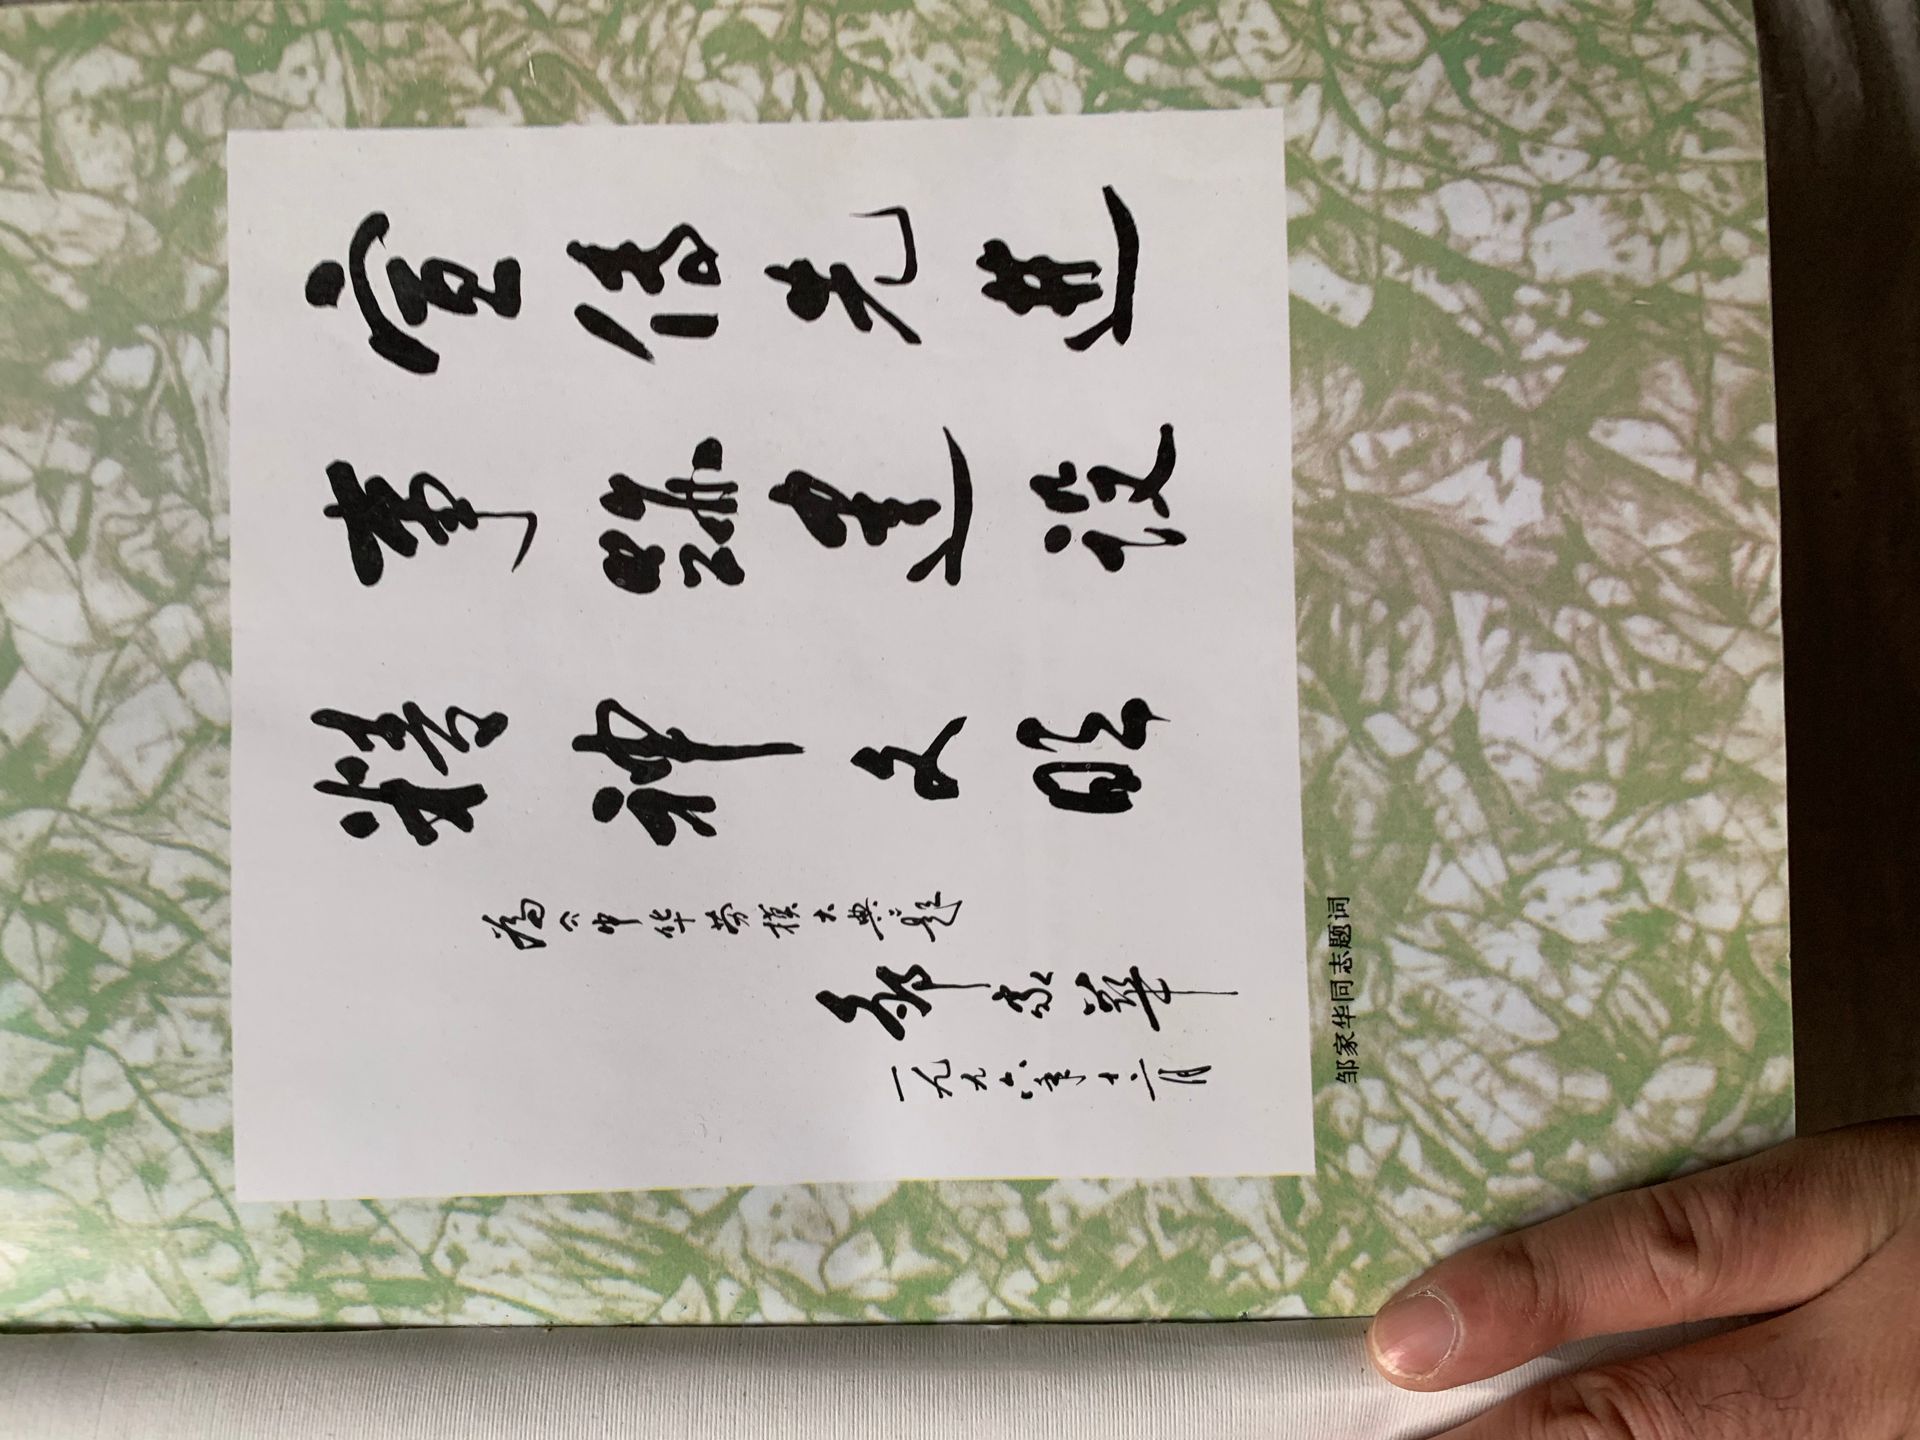 宣传先进
事迹建设
精神文明
为《中华劳模大典》题
邹家华
一九九六年十二月
邹家华同志题词